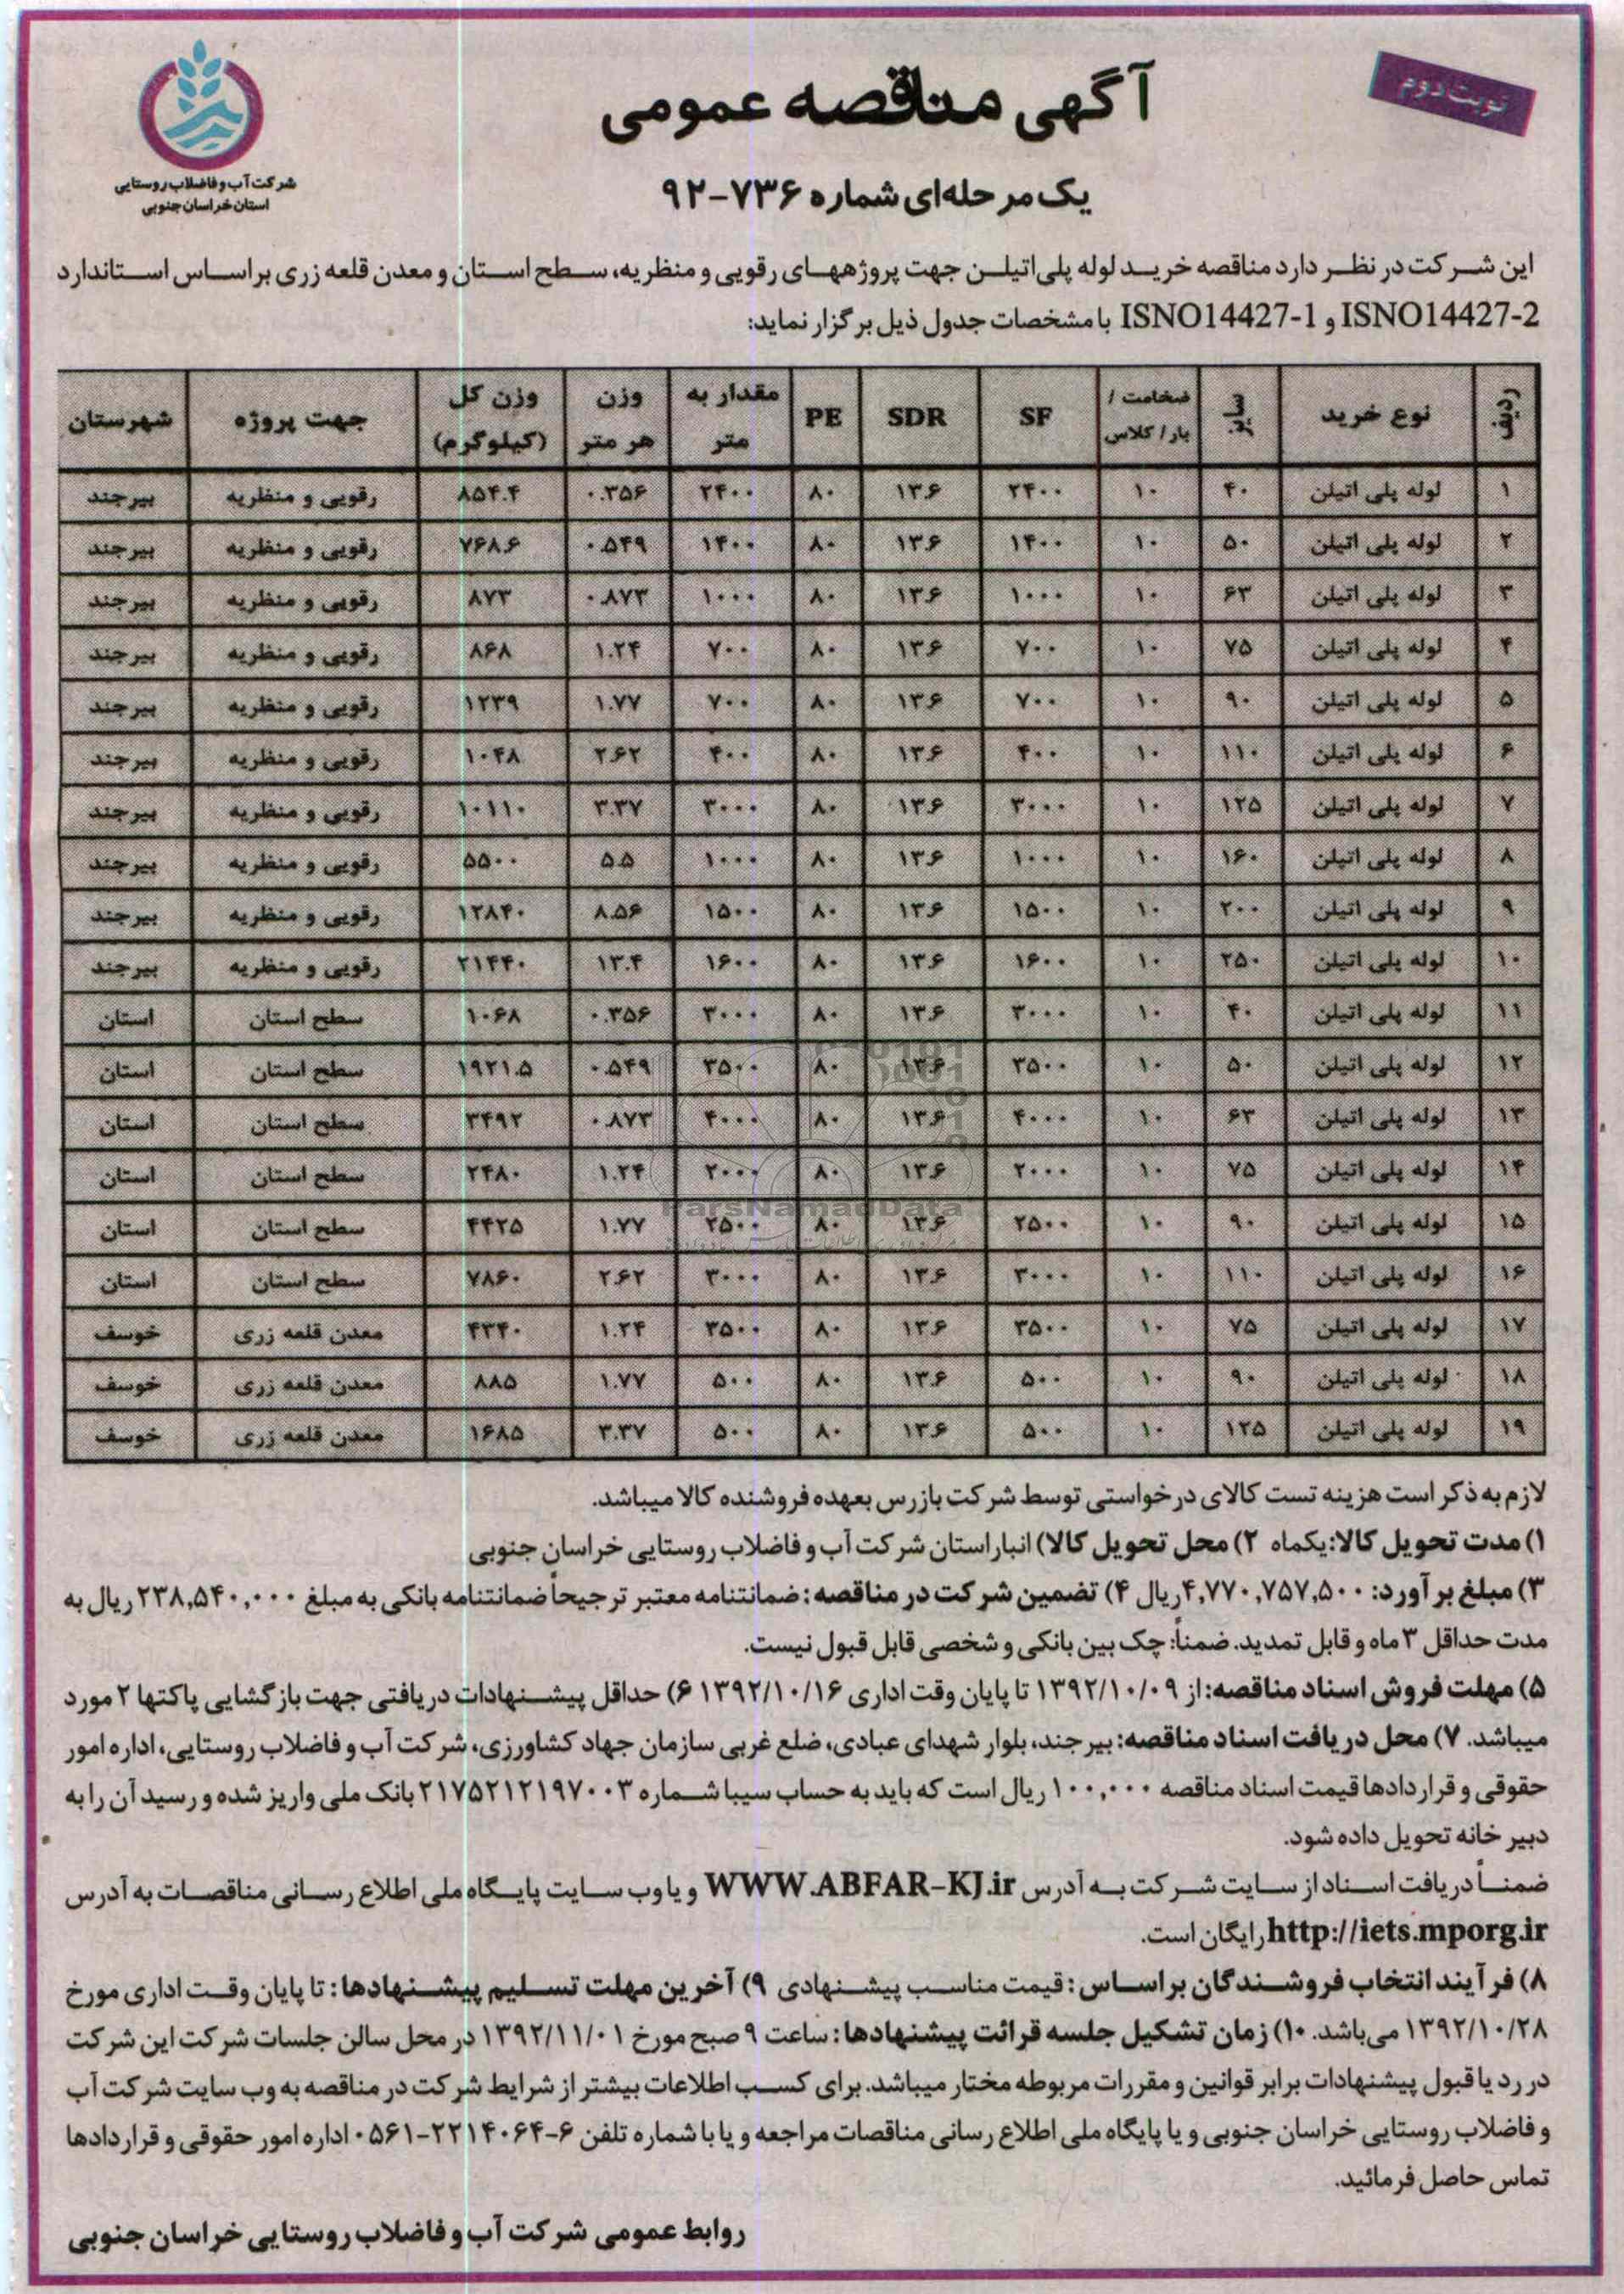 نوبت دوم
آگهی مناقصه عمومی
یک مرحله‌ای شماره ۷۳۶-۹۲
شرکت آب و فاضلاب روستایی
استان خراسان جنوبی
این شرکت در نظر دارد مناقصه خرید لوله پلی‌اتیلن جهت پروژههای رقویی و منظریه، سطح استان و معدن قلعه زری بر اساس استاندارد
ISNO14427-2 و ISNO14427-1 با مشخصات جدول ذیل برگزار نماید:
ردیف | نوع خرید | سایز | ضخامت / بار / کلاس | SF | SDR | PE | مقدار به متر | وزن هر متر | وزن کل (کیلوگرم) | جهت پروژه | شهرستان
۱ | لوله پلی اتیلن | ۴۰ | ۱۰ | ۲۴۰۰ | ۱۳.۶ | ۸۰ | ۲۴۰۰ | ۰.۳۵۶ | ۸۵۴.۴ | رقویی و منظریه | بیرجند
۲ | لوله پلی اتیلن | ۵۰ | ۱۰ | ۱۴۰۰ | ۱۳.۶ | ۸۰ | ۱۴۰۰ | ۰.۵۴۹ | ۷۶۸.۶ | رقویی و منظریه | بیرجند
۳ | لوله پلی اتیلن | ۶۳ | ۱۰ | ۱۰۰۰ | ۱۳.۶ | ۸۰ | ۱۰۰۰ | ۰.۸۷۳ | ۸۷۳ | رقویی و منظریه | بیرجند
۴ | لوله پلی اتیلن | ۷۵ | ۱۰ | ۷۰۰ | ۱۳.۶ | ۸۰ | ۷۰۰ | ۱.۲۴ | ۸۶۸ | رقویی و منظریه | بیرجند
۵ | لوله پلی اتیلن | ۹۰ | ۱۰ | ۷۰۰ | ۱۳.۶ | ۸۰ | ۷۰۰ | ۱.۷۷ | ۱۲۳۹ | رقویی و منظریه | بیرجند
۶ | لوله پلی اتیلن | ۱۱۰ | ۱۰ | ۴۰۰ | ۱۳.۶ | ۸۰ | ۴۰۰ | ۲.۶۲ | ۱۰۴۸ | رقویی و منظریه | بیرجند
۷ | لوله پلی اتیلن | ۱۲۵ | ۱۰ | ۳۰۰۰ | ۱۳.۶ | ۸۰ | ۳۰۰۰ | ۳.۳۷ | ۱۰۱۱۰ | رقویی و منظریه | بیرجند
۸ | لوله پلی اتیلن | ۱۶۰ | ۱۰ | ۱۰۰۰ | ۱۳.۶ | ۸۰ | ۱۰۰۰ | ۵.۵ | ۵۵۰۰ | رقویی و منظریه | بیرجند
۹ | لوله پلی اتیلن | ۲۰۰ | ۱۰ | ۱۵۰۰ | ۱۳.۶ | ۸۰ | ۱۵۰۰ | ۸.۵۶ | ۱۲۸۴۰ | رقویی و منظریه | بیرجند
۱۰ | لوله پلی اتیلن | ۲۵۰ | ۱۰ | ۱۶۰۰ | ۱۳.۶ | ۸۰ | ۱۶۰۰ | ۱۳.۴ | ۲۱۴۴۰ | رقویی و منظریه | بیرجند
۱۱ | لوله پلی اتیلن | ۴۰ | ۱۰ | ۳۰۰۰ | ۱۳.۶ | ۸۰ | ۳۰۰۰ | ۰.۳۵۶ | ۱۰۶۸ | سطح استان | استان
۱۲ | لوله پلی اتیلن | ۵۰ | ۱۰ | ۳۵۰۰ | ۱۳.۶ | ۸۰ | ۳۵۰۰ | ۰.۵۴۹ | ۱۹۲۱.۵ | سطح استان | استان
۱۳ | لوله پلی اتیلن | ۶۳ | ۱۰ | ۴۰۰۰ | ۱۳.۶ | ۸۰ | ۴۰۰۰ | ۰.۸۷۳ | ۳۴۹۲ | سطح استان | استان
۱۴ | لوله پلی اتیلن | ۷۵ | ۱۰ | ۲۰۰۰ | ۱۳.۶ | ۸۰ | ۲۰۰۰ | ۱.۲۴ | ۲۴۸۰ | سطح استان | استان
۱۵ | لوله پلی اتیلن | ۹۰ | ۱۰ | ۲۵۰۰ | ۱۳.۶ | ۸۰ | ۲۵۰۰ | ۱.۷۷ | ۴۴۲۵ | سطح استان | استان
۱۶ | لوله پلی اتیلن | ۱۱۰ | ۱۰ | ۳۰۰۰ | ۱۳.۶ | ۸۰ | ۳۰۰۰ | ۲.۶۲ | ۷۸۶۰ | سطح استان | استان
۱۷ | لوله پلی اتیلن | ۷۵ | ۱۰ | ۳۵۰۰ | ۱۳.۶ | ۸۰ | ۳۵۰۰ | ۱.۲۴ | ۴۳۴۰ | معدن قلعه زری | خوسف
۱۸ | لوله پلی اتیلن | ۹۰ | ۱۰ | ۵۰۰ | ۱۳.۶ | ۸۰ | ۵۰۰ | ۱.۷۷ | ۸۸۵ | معدن قلعه زری | خوسف
۱۹ | لوله پلی اتیلن | ۱۲۵ | ۱۰ | ۵۰۰ | ۱۳.۶ | ۸۰ | ۵۰۰ | ۳.۳۷ | ۱۶۸۵ | معدن قلعه زری | خوسف
ParsNamadData
لازم به ذکر است هزینه تست کالای درخواستی توسط شرکت بازرس بعهده فروشنده کالا میباشد.
۱) مدت تحویل کالا: یکماه ۲) محل تحویل کالا) انبار استان شرکت آب و فاضلاب روستایی خراسان جنوبی
۳) مبلغ برآورد: ۴,۷۷۰,۷۵۷,۵۰۰ ریال ۴) تضمین شرکت در مناقصه: ضمانتنامه معتبر ترجیحاً ضمانتنامه بانکی به مبلغ ۲۳۸,۵۴۰,۰۰۰ ریال به
مدت حداقل ۳ ماه و قابل تمدید. ضمناً: چک بین بانکی و شخصی قابل قبول نیست.
۵) مهلت فروش اسناد مناقصه: از ۱۳۹۲/۱۰/۰۹ تا پایان وقت اداری ۱۳۹۲/۱۰/۱۶ ۶) حداقل پیشنهادات دریافتی جهت بازگشایی پاکتها ۲ مورد
میباشد. ۷) محل دریافت اسناد مناقصه: بیرجند، بلوار شهدای عبادی، ضلع غربی سازمان جهاد کشاورزی، شرکت آب و فاضلاب روستایی، اداره امور
حقوقی و قراردادها قیمت اسناد مناقصه ۱۰۰,۰۰۰ ریال است که باید به حساب سیبا شماره ۲۱۷۵۲۱۲۱۹۷۰۰۳ بانک ملی واریز شده و رسید آن را به
دبیر خانه تحویل داده شود.
ضمناً دریافت اسناد از سایت شرکت به آدرس WWW.ABFAR-KJ.ir و یا وب سایت پایگاه ملی اطلاع رسانی مناقصات به آدرس
http://iets.mporg.ir رایگان است.
۸) فرآیند انتخاب فروشندگان بر اساس: قیمت مناسب پیشنهادی ۹) آخرین مهلت تسلیم پیشنهادها: تا پایان وقت اداری مورخ
۱۳۹۲/۱۰/۲۸ می‌باشد. ۱۰) زمان تشکیل جلسه قرائت پیشنهادها: ساعت ۹ صبح مورخ ۱۳۹۲/۱۱/۰۱ در محل سالن جلسات شرکت این شرکت
در رد یا قبول پیشنهادات برابر قوانین و مقررات مربوطه مختار میباشد. برای کسب اطلاعات بیشتر از شرایط شرکت در مناقصه به وب سایت شرکت آب
و فاضلاب روستایی خراسان جنوبی و یا پایگاه ملی اطلاع رسانی مناقصات مراجعه و یا با شماره تلفن ۶-۲۲۱۴۰۶۴-۰۵۶۱ اداره امور حقوقی و قراردادها
تماس حاصل فرمائید.
روابط عمومی شرکت آب و فاضلاب روستایی خراسان جنوبی